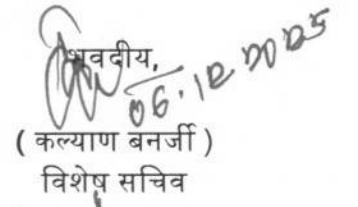 भवदीय,
06.12.2025
( कल्याण बनर्जी )
विशेष सचिव